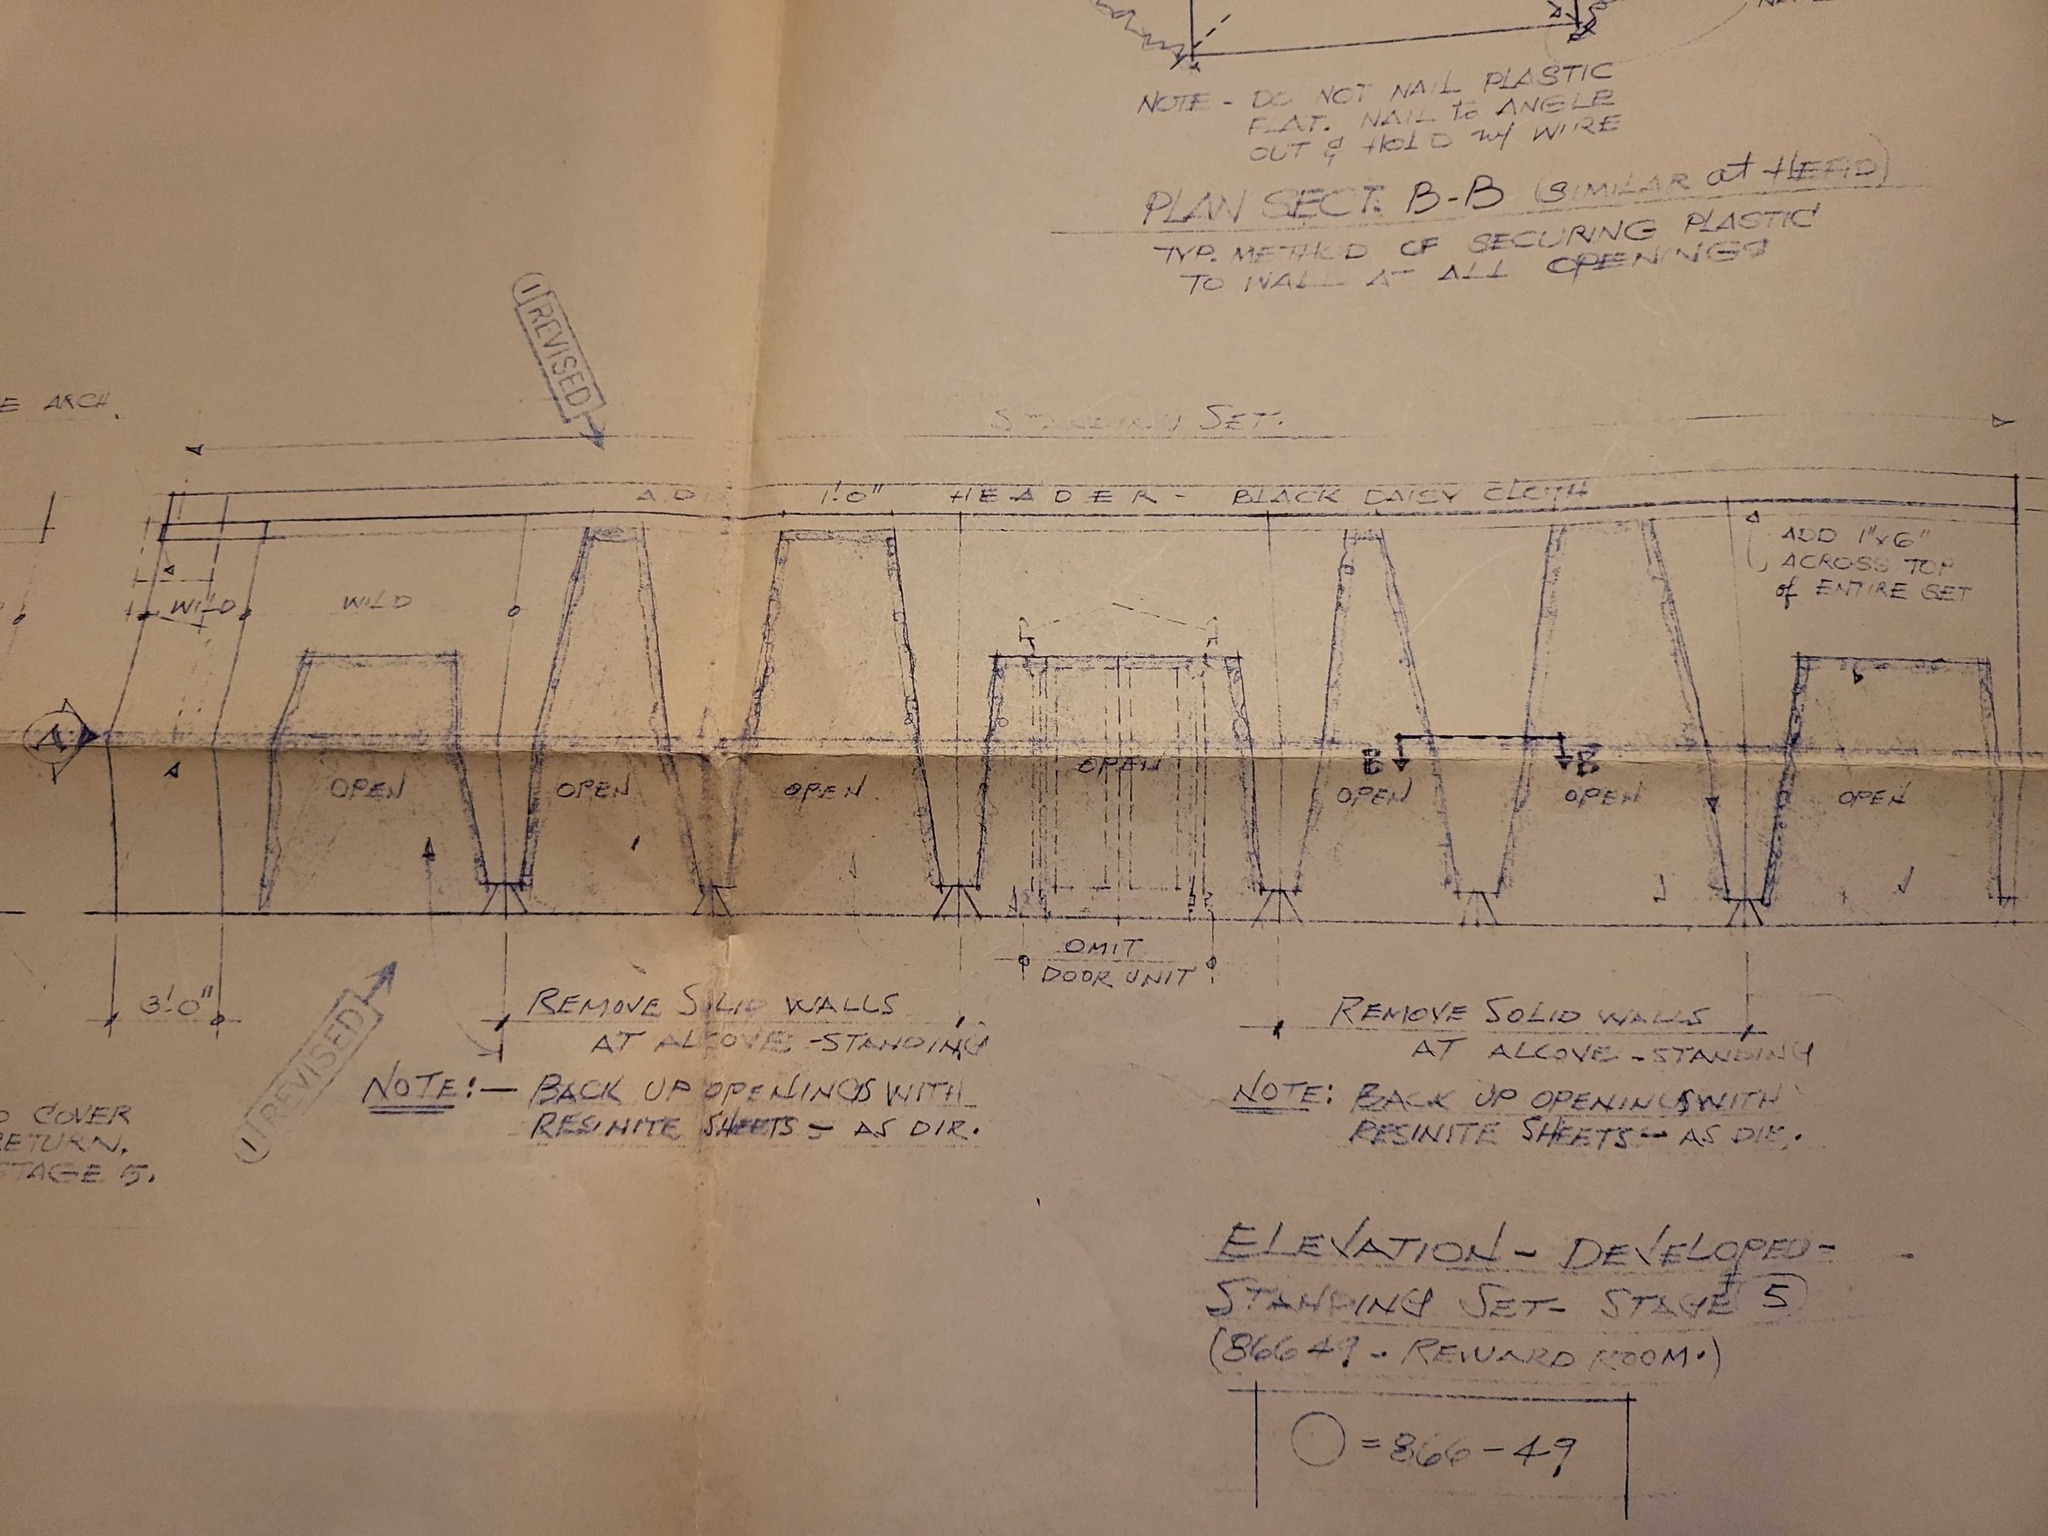 NOTE - DO NOT NAIL PLASTIC
FLAT. NAIL to ANGLE
OUT & HOLD w/ WIRE
PLAN SECT. B-B (SIMILAR at HEAD)
TYP. METHOD OF SECURING PLASTIC
TO WALL AT ALL OPENINGS
1 REVISED
E ARCH.
STANDING SET.
ADD 1'-0" HEADER - BLACK DAISY CLOTH
ADD 1"x6"
ACROSS TOP
of ENTIRE SET
WILD
WILD
A
B
B
OPEN
OPEN
OPEN
OPEN
OPEN
OPEN
OPEN
OMIT
DOOR UNIT
3'-0"
REMOVE SOLID WALLS
AT ALCOVE - STANDING
NOTE: - BACK UP OPENINGS WITH
RESINITE SHEETS - AS DIR.
REMOVE SOLID WALLS
AT ALCOVE - STANDING
NOTE: BACK UP OPENINGS WITH
RESINITE SHEETS - AS DIR.
1 REVISED
COVER
RETURN.
STAGE 5.
ELEVATION - DEVELOPED -
STANDING SET - STAGE 5
(86649 - REWARD ROOM.)
= 866-49